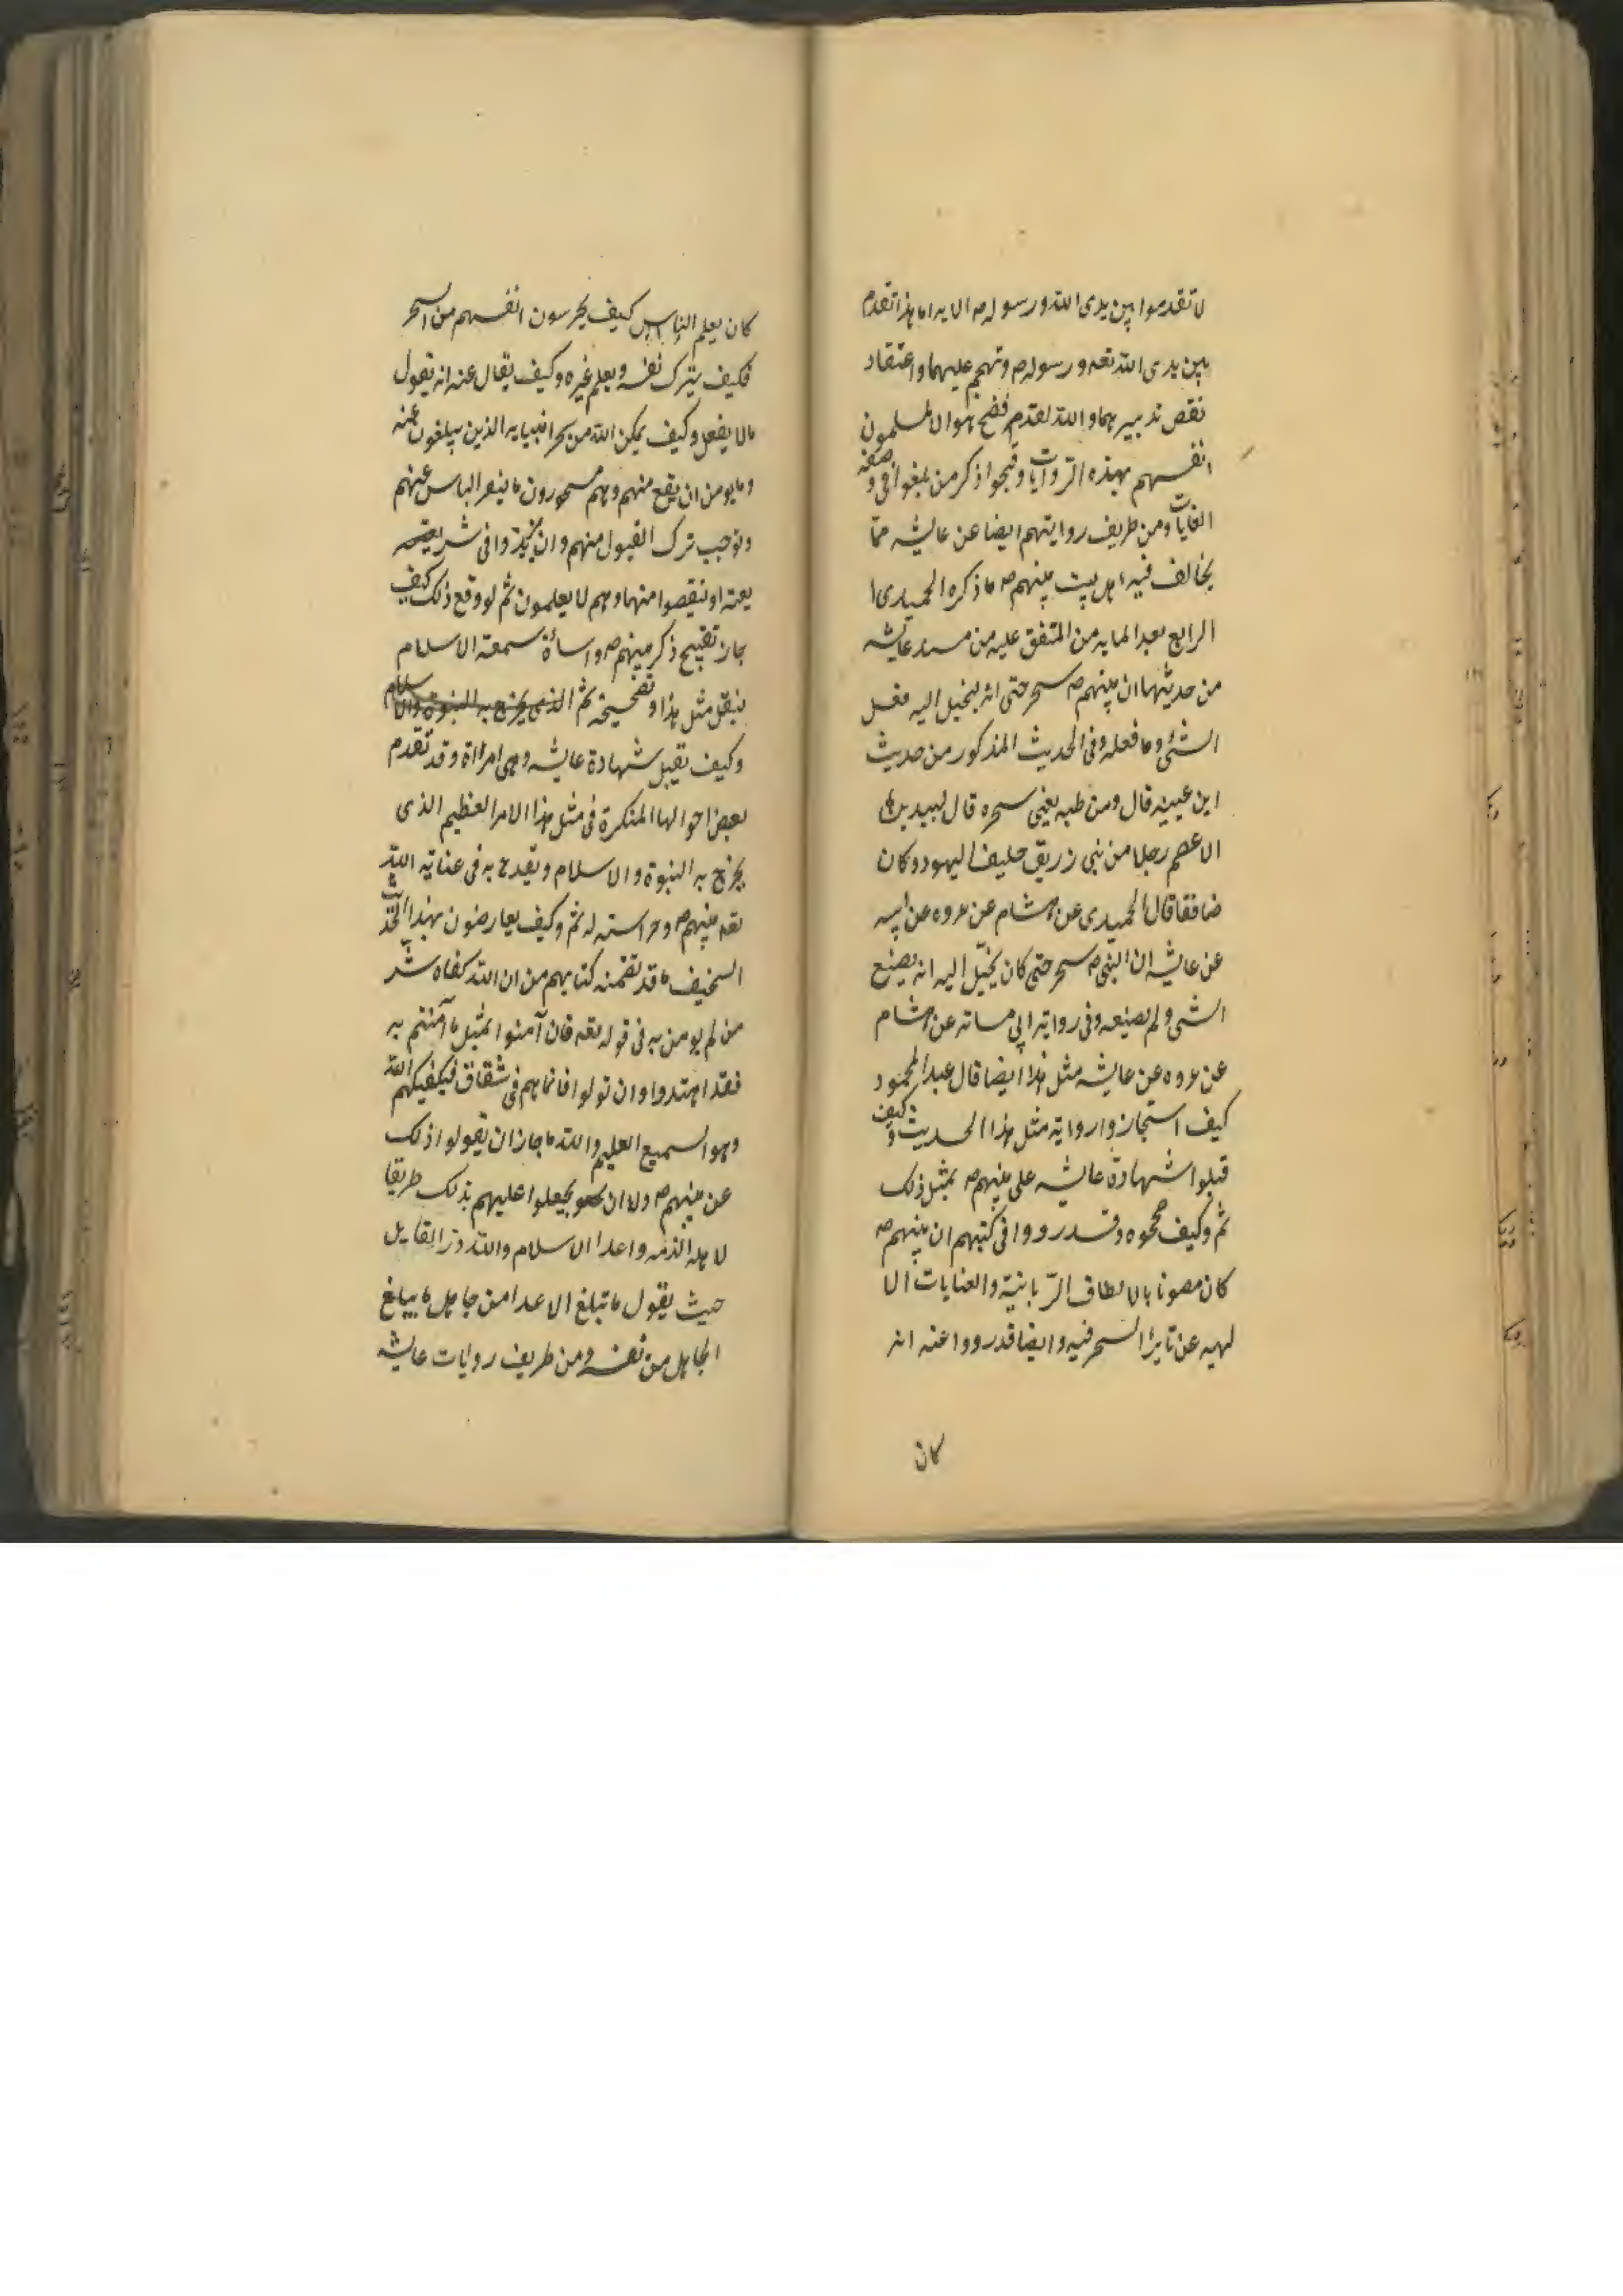 لا تقدموا بين يدى الله ورسوله ص الايه اما هذا تقدم
بين يدى الله تعه ورسوله ص وتهجم عليهما واعتقاد
نقص تدبيرهما والله لقد فضح هوالا المسلمون
انفسهم بهذه الروايات وقبحوا ذكر من بلغوا فى وصفه
الغايات ومن طريف روايتهم ايضا عن عايشه مما
يخالف فيه اهل بيت نبيهم ص ما ذكره الحميدى ا
الرابع بعد المايه من المتفق عليه من مسند عايشه
من حديثها ان نبيهم ص سحر حتى انه ليخيل اليه فعل
الشئ وما فعله وفى الحديث المذكور من حديث
ابن عيينه قال ومن طبه يعنى سحره قال لبيد بن
الاعصم رجلا من بنى زريق حليف اليهود وكان
منافقا قال الحميدى عن هشام عن عروه عن ابيه
عن عايشه ان النبى ص سحر حتى كان يخيل اليه انه يصنع
الشى ولم يصنعه وفى رواية ابى اسامه عن هشام
عن عروه عن عايشه مثل هذا ايضا قال عبد المحمود
كيف استجازوا رواية مثل هذا الحديث وكيف
قبلوا شهادة عايشه على نبيهم ص بمثل ذلك
ثم وكيف صححوه وقد رووا فى كتبهم ان نبيهم ص
كان مصونا بالالطاف الربانية والعنايات الا
لهيه عن تاثير السحر فيه وايضا قد رووا عنه انه
كان
كان يعلم الناس كيف يحرسون انفسهم من السحر
فكيف يترك نفسه ويعلم غيره وكيف يقال عنه انه يقول
ما لا يفعل وكيف يمكن الله من سحر انبيايه الذين يبلغون عنه
وما يومن ان يقع منهم وهم مسحورون ما ينفر الناس عنهم
ويوجب ترك القبول منهم وان يزيدوا فى شريعته
او ينقصوا منها وهم لا يعلمون ثم لو وقع ذلك كيف
جاز تقبيح ذكر نبيهم ص واساءة سمعة الاسلام
بنقل مثل هذا وتصحيحه ثم الذى يخرج به النبوة والاسلام
وكيف يقبل شهادة عايشه وهى امراة وقد تقدم
بعض احوالها المنكرة فى مثل هذا الامر العظيم الذى
يخرج به النبوة والاسلام ويقدح به فى عناية الله
تعه بنبيهم ص وحراسته له ثم وكيف يعارضون بهذا الحديث
السخيف ما قد تضمنه كتابهم من ان الله كفاه شر
من لم يومن به فى قوله تعه فان آمنوا بمثل ما آمنتم به
فقد اهتدوا وان تولوا فانما هم فى شقاق فسيكفيكهم الله
وهو السميع العليم والله ما جاز ان يقولوا ذلك
عن نبيهم ص ولا ان يجعلوا عليهم بذلك طريقا
لاهل الذمه واعدا الاسلام والله در القايل
حيث يقول ما تبلغ الاعدا من جاهل ما يبلغ
الجاهل من نفسه ومن طريف روايات عايشه